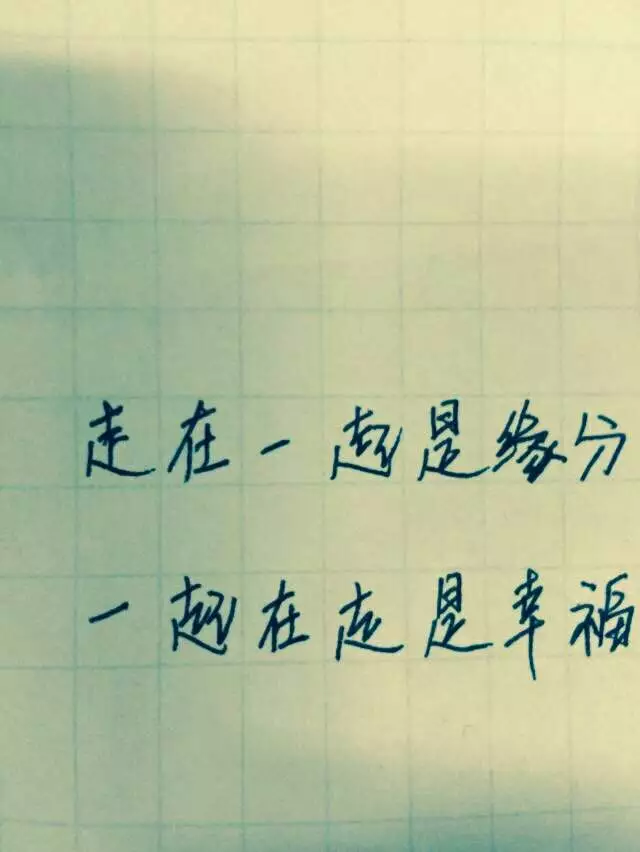 走在一起是缘分
一起在走是幸福